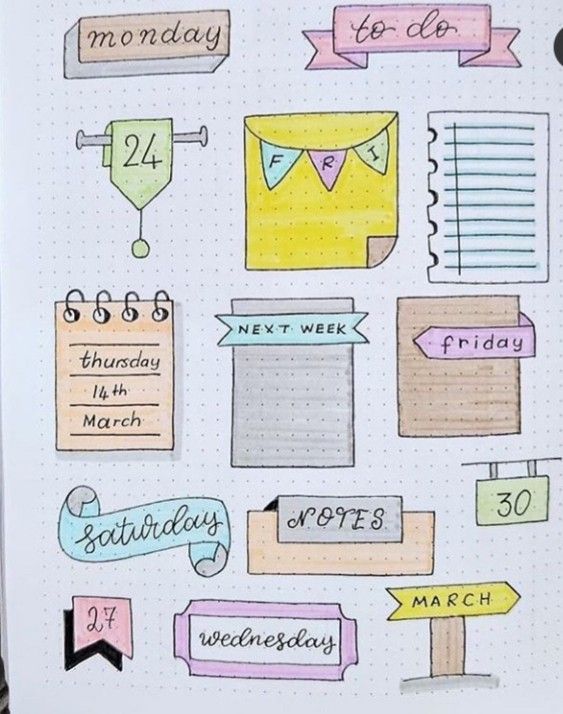 monday
to do
24
F R I
thursday
14th
March
NEXT WEEK
friday
saturday
NOTES
30
27
wednesday
MARCH